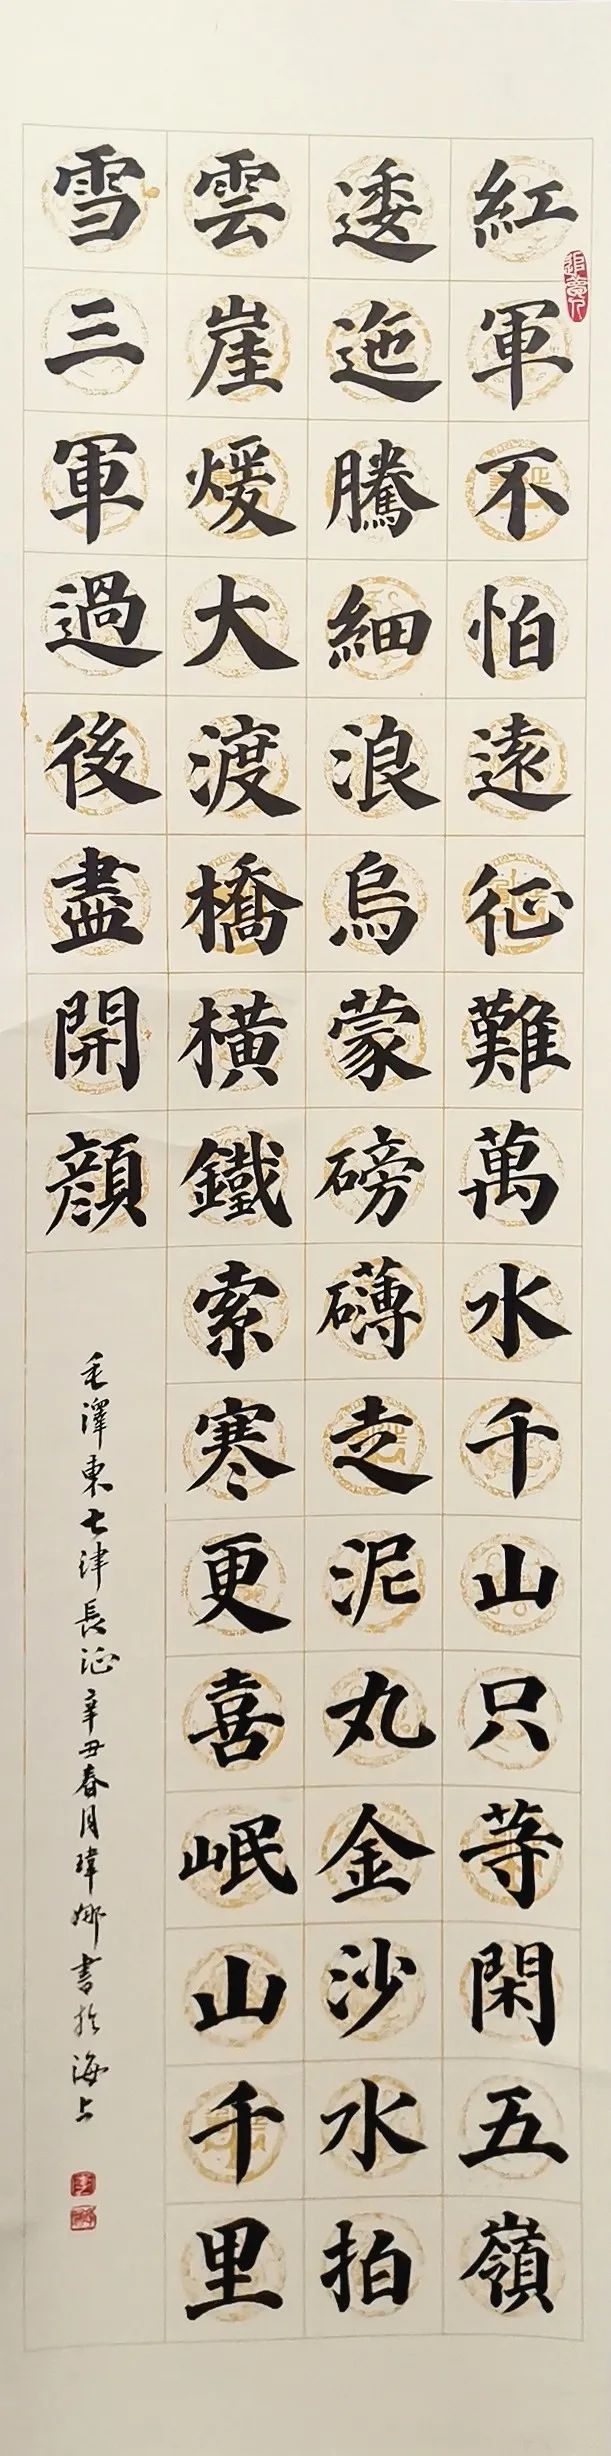 紅軍不怕遠征難萬水千山只等閑五嶺
逶迤騰細浪烏蒙磅礴走泥丸金沙水拍
雲崖煖大渡橋橫鐵索寒更喜岷山千里
雪三軍過後盡開顔
毛澤東七律長征辛丑春月瑋娜書於海上